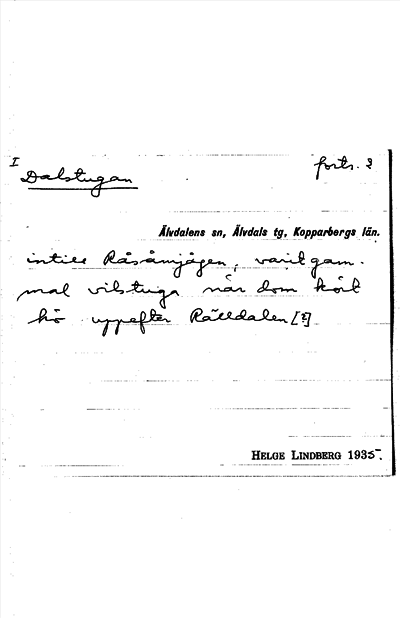 I
Dalstugan
forts. 2
Älvdalens sn, Älvdals tg, Kopparbergs län.
intill Råsåmjågen, varit gam-
mal vilstuga när dom kört
hö uppefter Rälldalen [?]
HELGE LINDBERG 1935.